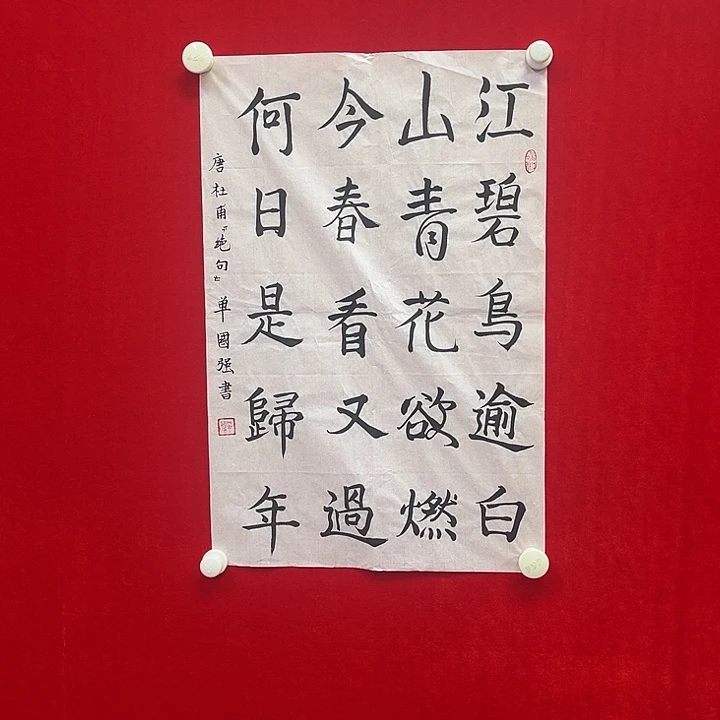 江碧鳥逾白
山青花欲燃
今春看又過
何日是歸年
唐杜甫《绝句》單國强書